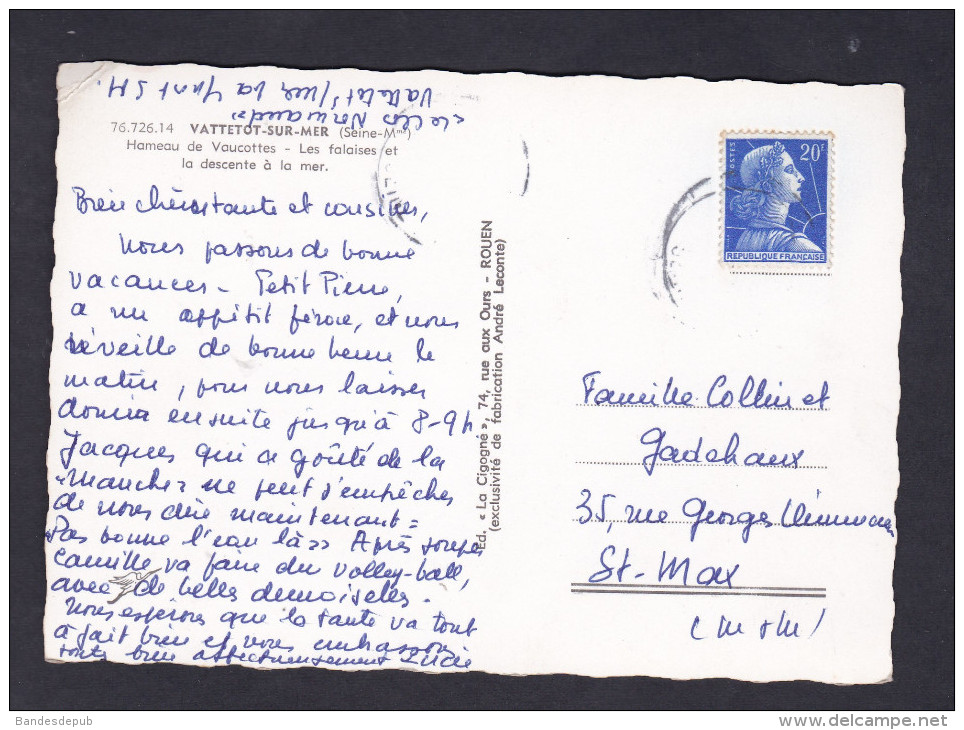 « le Clos Normand »
Vattetot s/mer
76.726.14 VATTETOT-SUR-MER (Seine-Mme)
Hameau de Vaucottes - Les falaises et
la descente à la mer.
Bien chère tante et cousines,
nous passons de bonne
vacances - Petit Pierre,
a un appétit féroce, et nous
réveille de bonne heure le
matin, pour nous laisser
dormir ensuite jusqu'à 8-9h.
Jacques qui a goûté de la
"Manche" ne peut s'empêcher
de nous dire maintenant =
Pas bonne l'eau là" Après souper
Camille va faire du volley-ball,
avec de belles demoiselles.
Nous espérons que la santé va tout
à fait bien et vous embrassons
toutes bien affectueusement Lucie
Ed. « La Cigogne », 74, rue aux Ours - ROUEN
(exclusivité de fabrication André Leconte)
POSTES
20F
REPUBLIQUE FRANÇAISE
Famille Collin et
Gadchaux
35, rue Georges Clémenceau
St-Max
(M & M)
Bandesdepub
www.delcampe.net